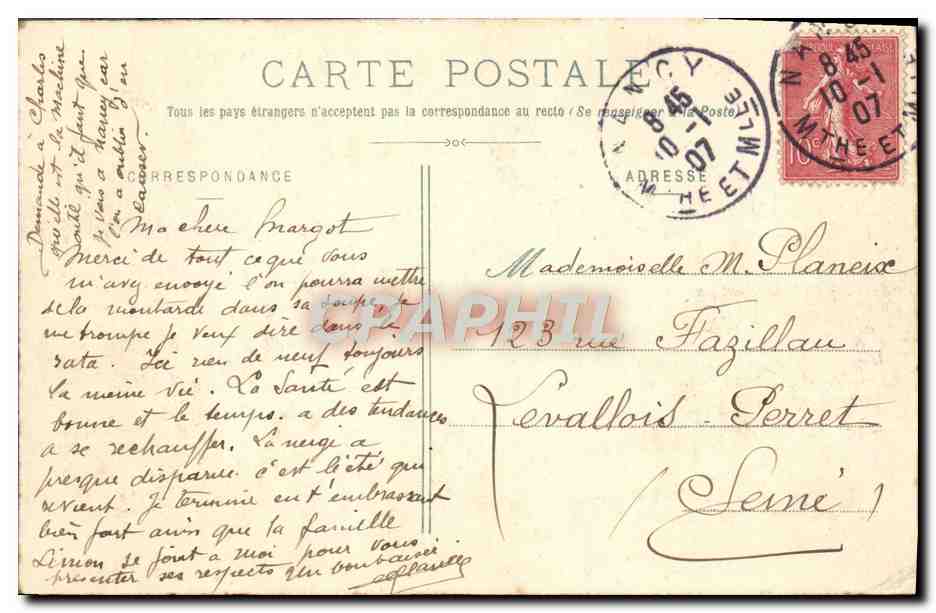 CARTE POSTALE
Tous les pays étrangers n'acceptent pas la correspondance au recto (Se renseigner à la Poste)
CORRESPONDANCE
ADRESSE
NANCY
8 45
10 -1
07
MTHE ET MLLE
NAN
8 45
10 -1
07
MTHE ET M LLE
10c
Demande à Charles
qu'elle est la machine
outil qu'il faut que
je vous a Nancy car
l'on a oublin d'en
causer
Ma chere Margot
Merci de tout ce que vous
m'avez envoyé l'on pourra mettre
de la moutarde dans sa soupe, je
me trompe je veux dire dans le
rata. Ici rien de neuf toujours
la meme vié. La Santé est
bonne et le temps a des tendances
a se rechauffer. La neige a
presque disparue c'est l'été qui
revient. Je termine en t'embrassant
bien fort ainsi que la famille
Limon se joint a moi pour vous
presenter ses respects
Mademoiselle M. Planeix
123 rue Fazillau
Levallois-Perret
(Seine)
CPAPHIL